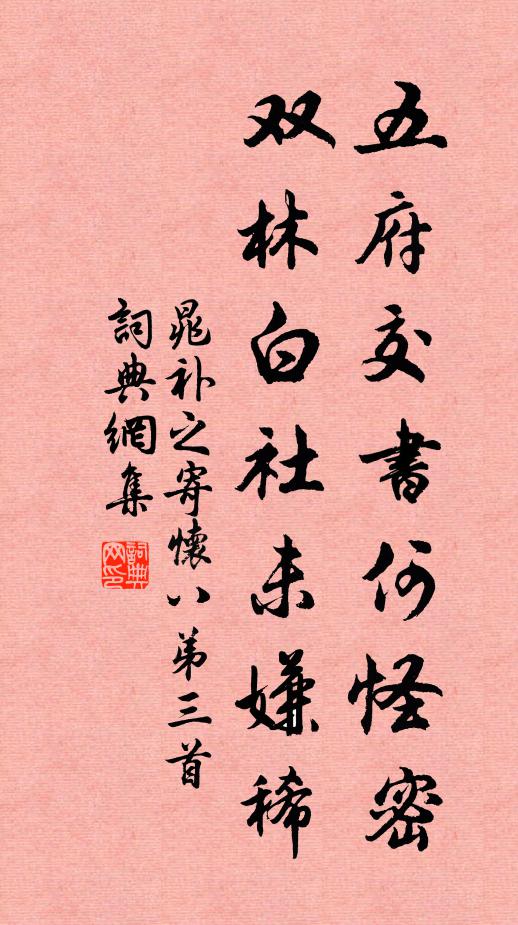 五府交書何怪密
双林白社未嫌稀
晁补之寄懷八第三首
詞典網集
詞典网印